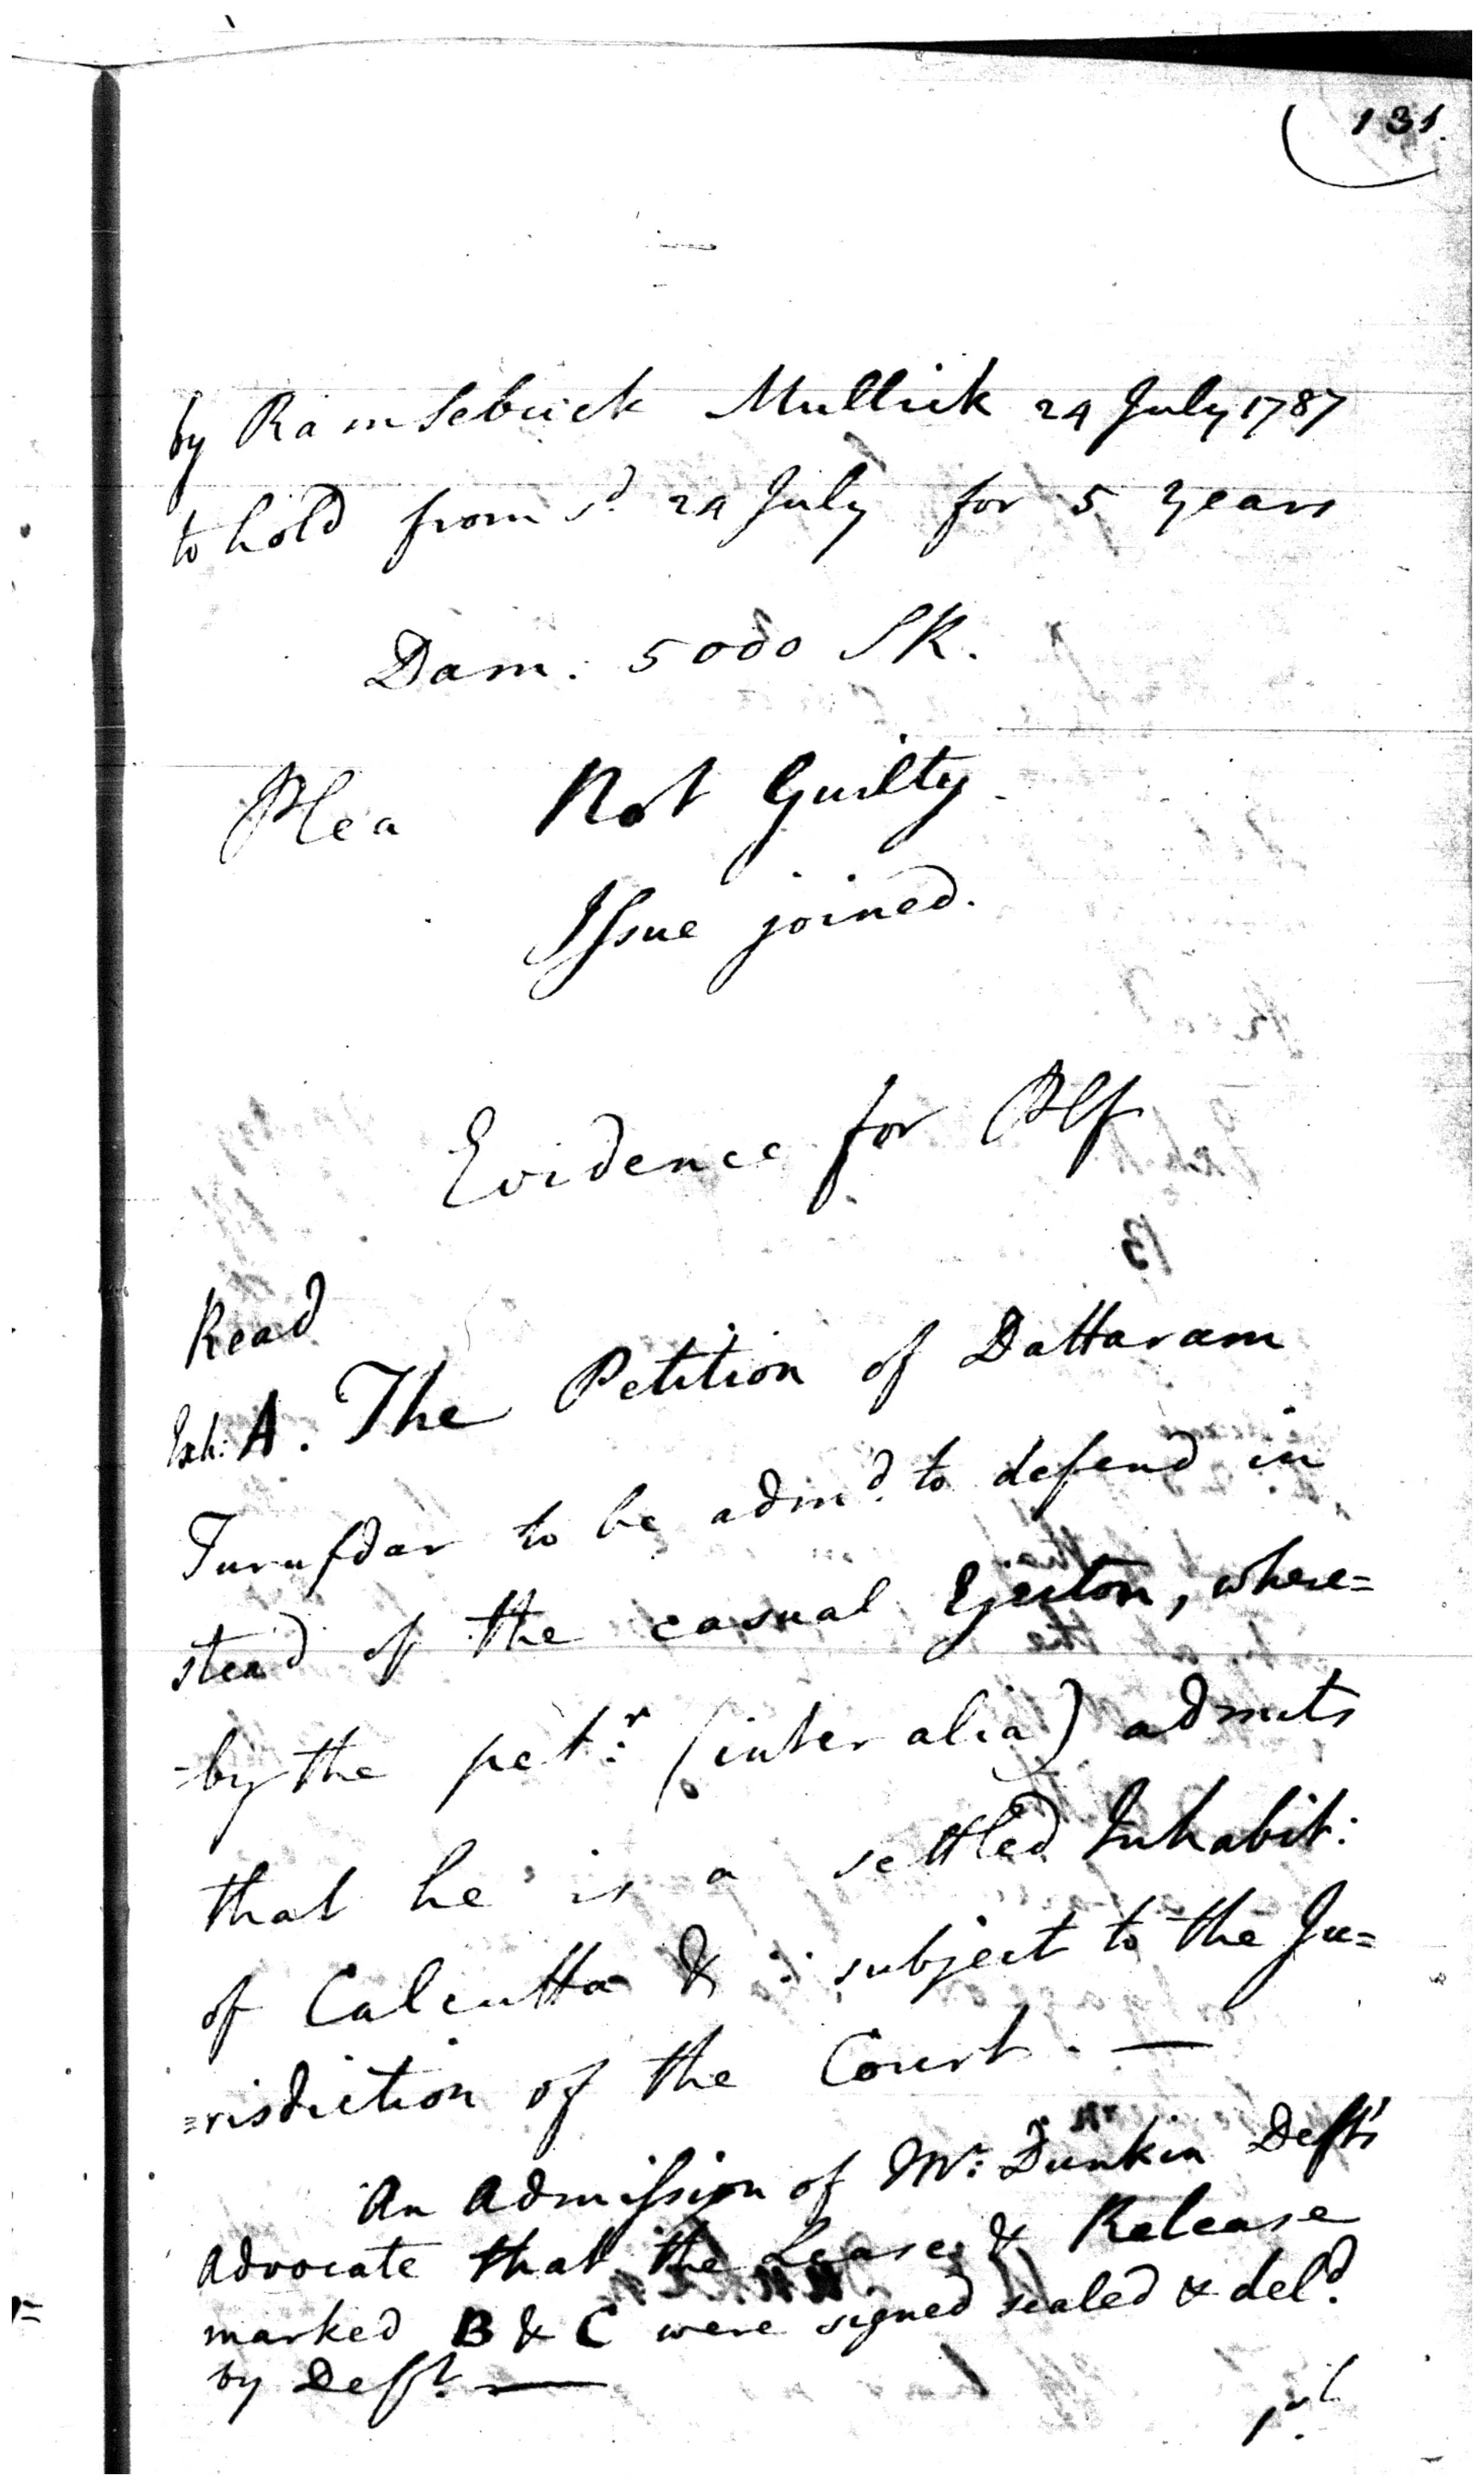 131.
by Ramsebuck Mullick 24 July 1787
to hold from sd. 24 July for 5 years
Dam: 5000 SR.
Plea Not Guilty.
Issue joined.
Evidence for Plf
Read
Exh: A. The Petition of Dattaram
to be admd. to defend in
stead of the casual Ejector, where=
=by the petr: (inter alia) admits
that he is a settled Inhabit:
of Calcutta & ∴ subject to the Ju=
=risdiction of the Court. —
An Admission of Mr: Dunkin Defts
Advocate that the Lease & Release
marked B & C were signed sealed & deld.
by Deft. —